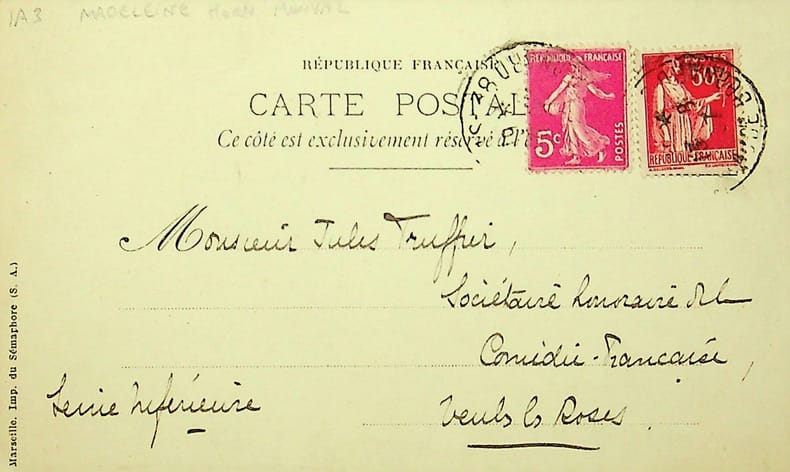 1A3 MADELEINE HORN MONVAL
RÉPUBLIQUE FRANÇAISE
CARTE POSTALE
Ce côté est exclusivement réservé à l'
RÉPUBLIQUE FRANÇAISE
5c
POSTES
POSTES
50c
RÉPUBLIQUE FRANÇAISE
Monsieur Jules Truffier,
Sociétaire honoraire de la
Comédie-Francaise,
Seine Inférieure
Veules les Roses
Marseille, Imp. du Sémaphore (S. A.)